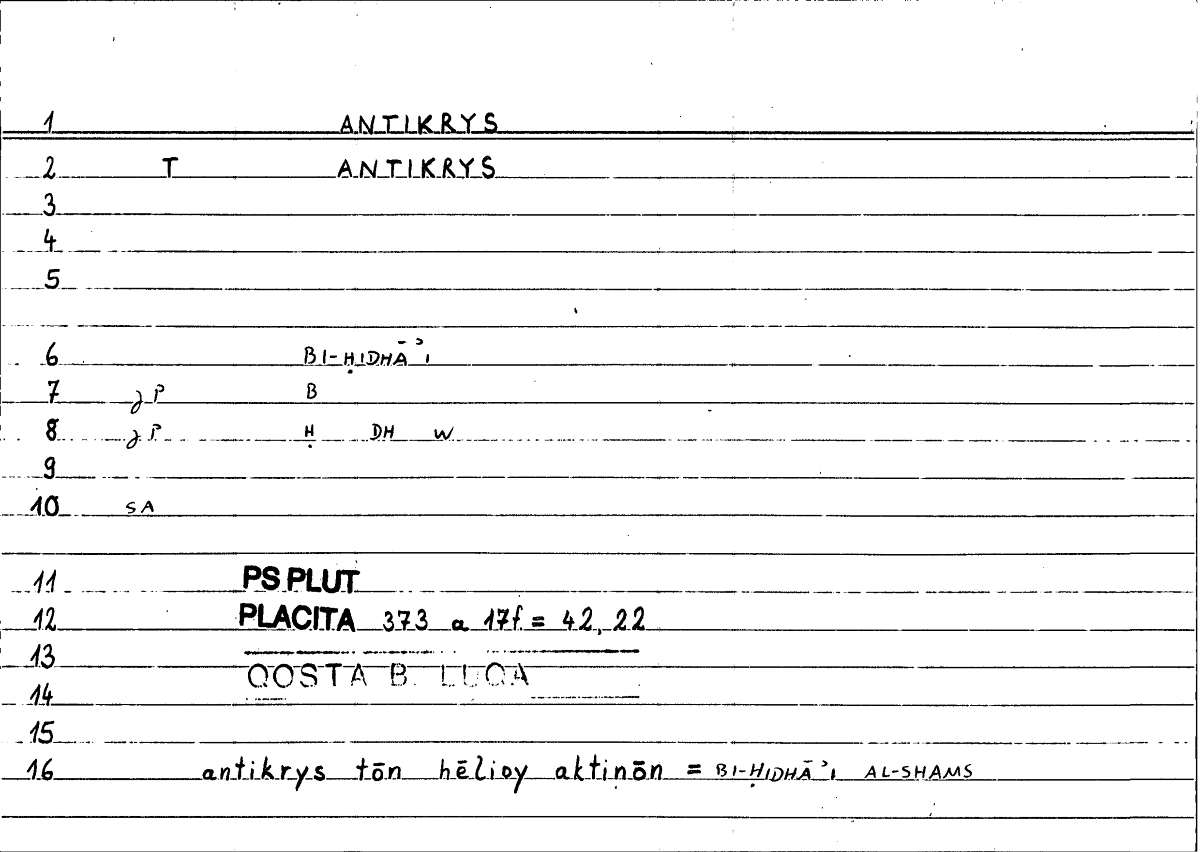 1 ANTIKRYS
2 T ANTIKRYS
3
4
5
6 BI-ḤIDHĀʾI
7 P B
8 P Ḥ DH W
9
10 SA
11 PS PLUT
12 PLACITA 373 a 17f. = 42, 22
13
QOSTA B. LUQA
14
15
16 antikrys tōn hēlioy aktinōn = BI-ḤIDHĀʾI AL-SHAMS